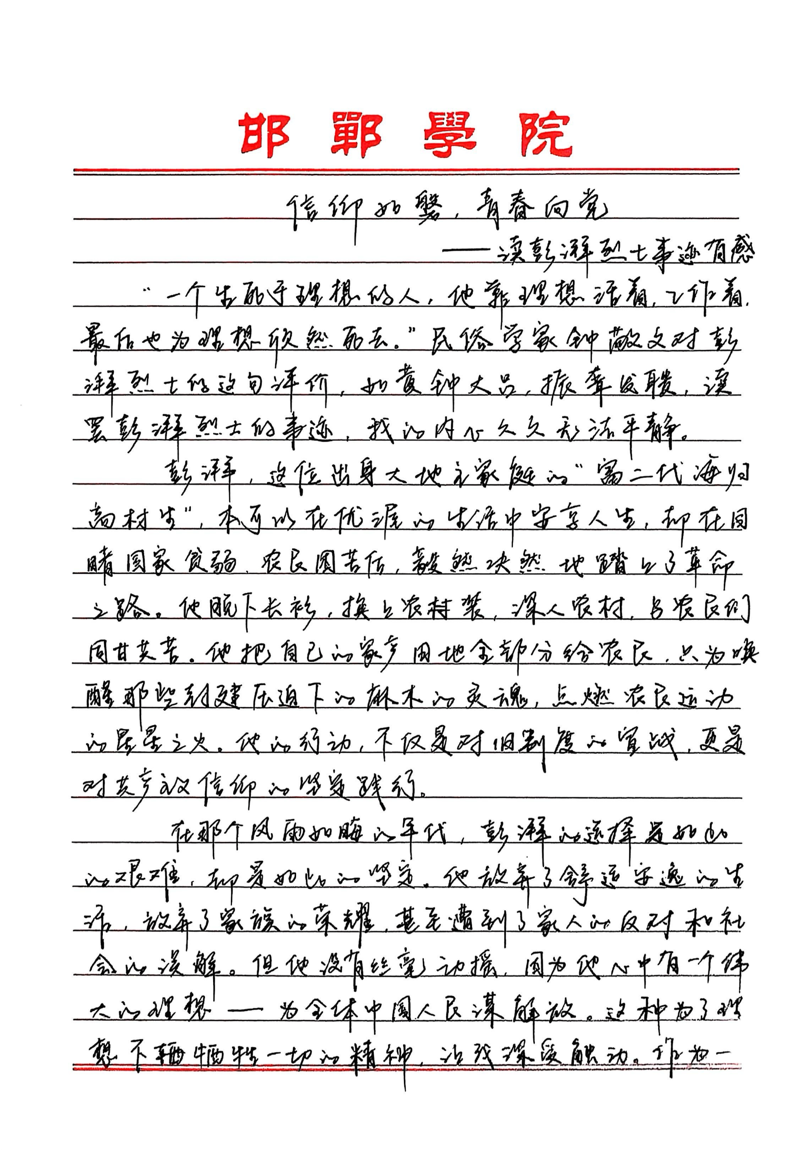 邯鄲學院
信仰如磐，青春向党
——读彭湃烈士事迹有感
“一个生死于理想的人，他靠理想活着，工作着，
最后也为理想欣然死去。”民俗学家钟敬文对彭
湃烈士的这句评价，如黄钟大吕，振聋发聩，读
罢彭湃烈士的事迹，我的内心久久无法平静。
彭湃，这位出身大地主家庭的“富二代海归
高材生”，本可以在优渥的生活中安享人生，却在目
睹国家贫弱、农民困苦后，毅然决然地踏上了革命
之路。他脱下长衫，换上农村装，深入农村，与农民们
同甘共苦。他把自己的家产田地全部分给农民，只为唤
醒那些封建压迫下的麻木的灵魂，点燃农民运动
的星星之火。他的行动，不仅是对旧制度的宣战，更是
对共产主义信仰的坚定践行。
在那个风雨如晦的年代，彭湃的选择是如此
的艰难，却是如此的坚定。他放弃了舒适安逸的生
活，放弃了家族的荣耀，甚至遭到了家人的反对和社
会的误解。但他没有丝毫动摇，因为他心中有一个伟
大的理想——为全体中国人民谋解放。这种为了理
想不牺牲一切的精神，让我深受触动。作为一